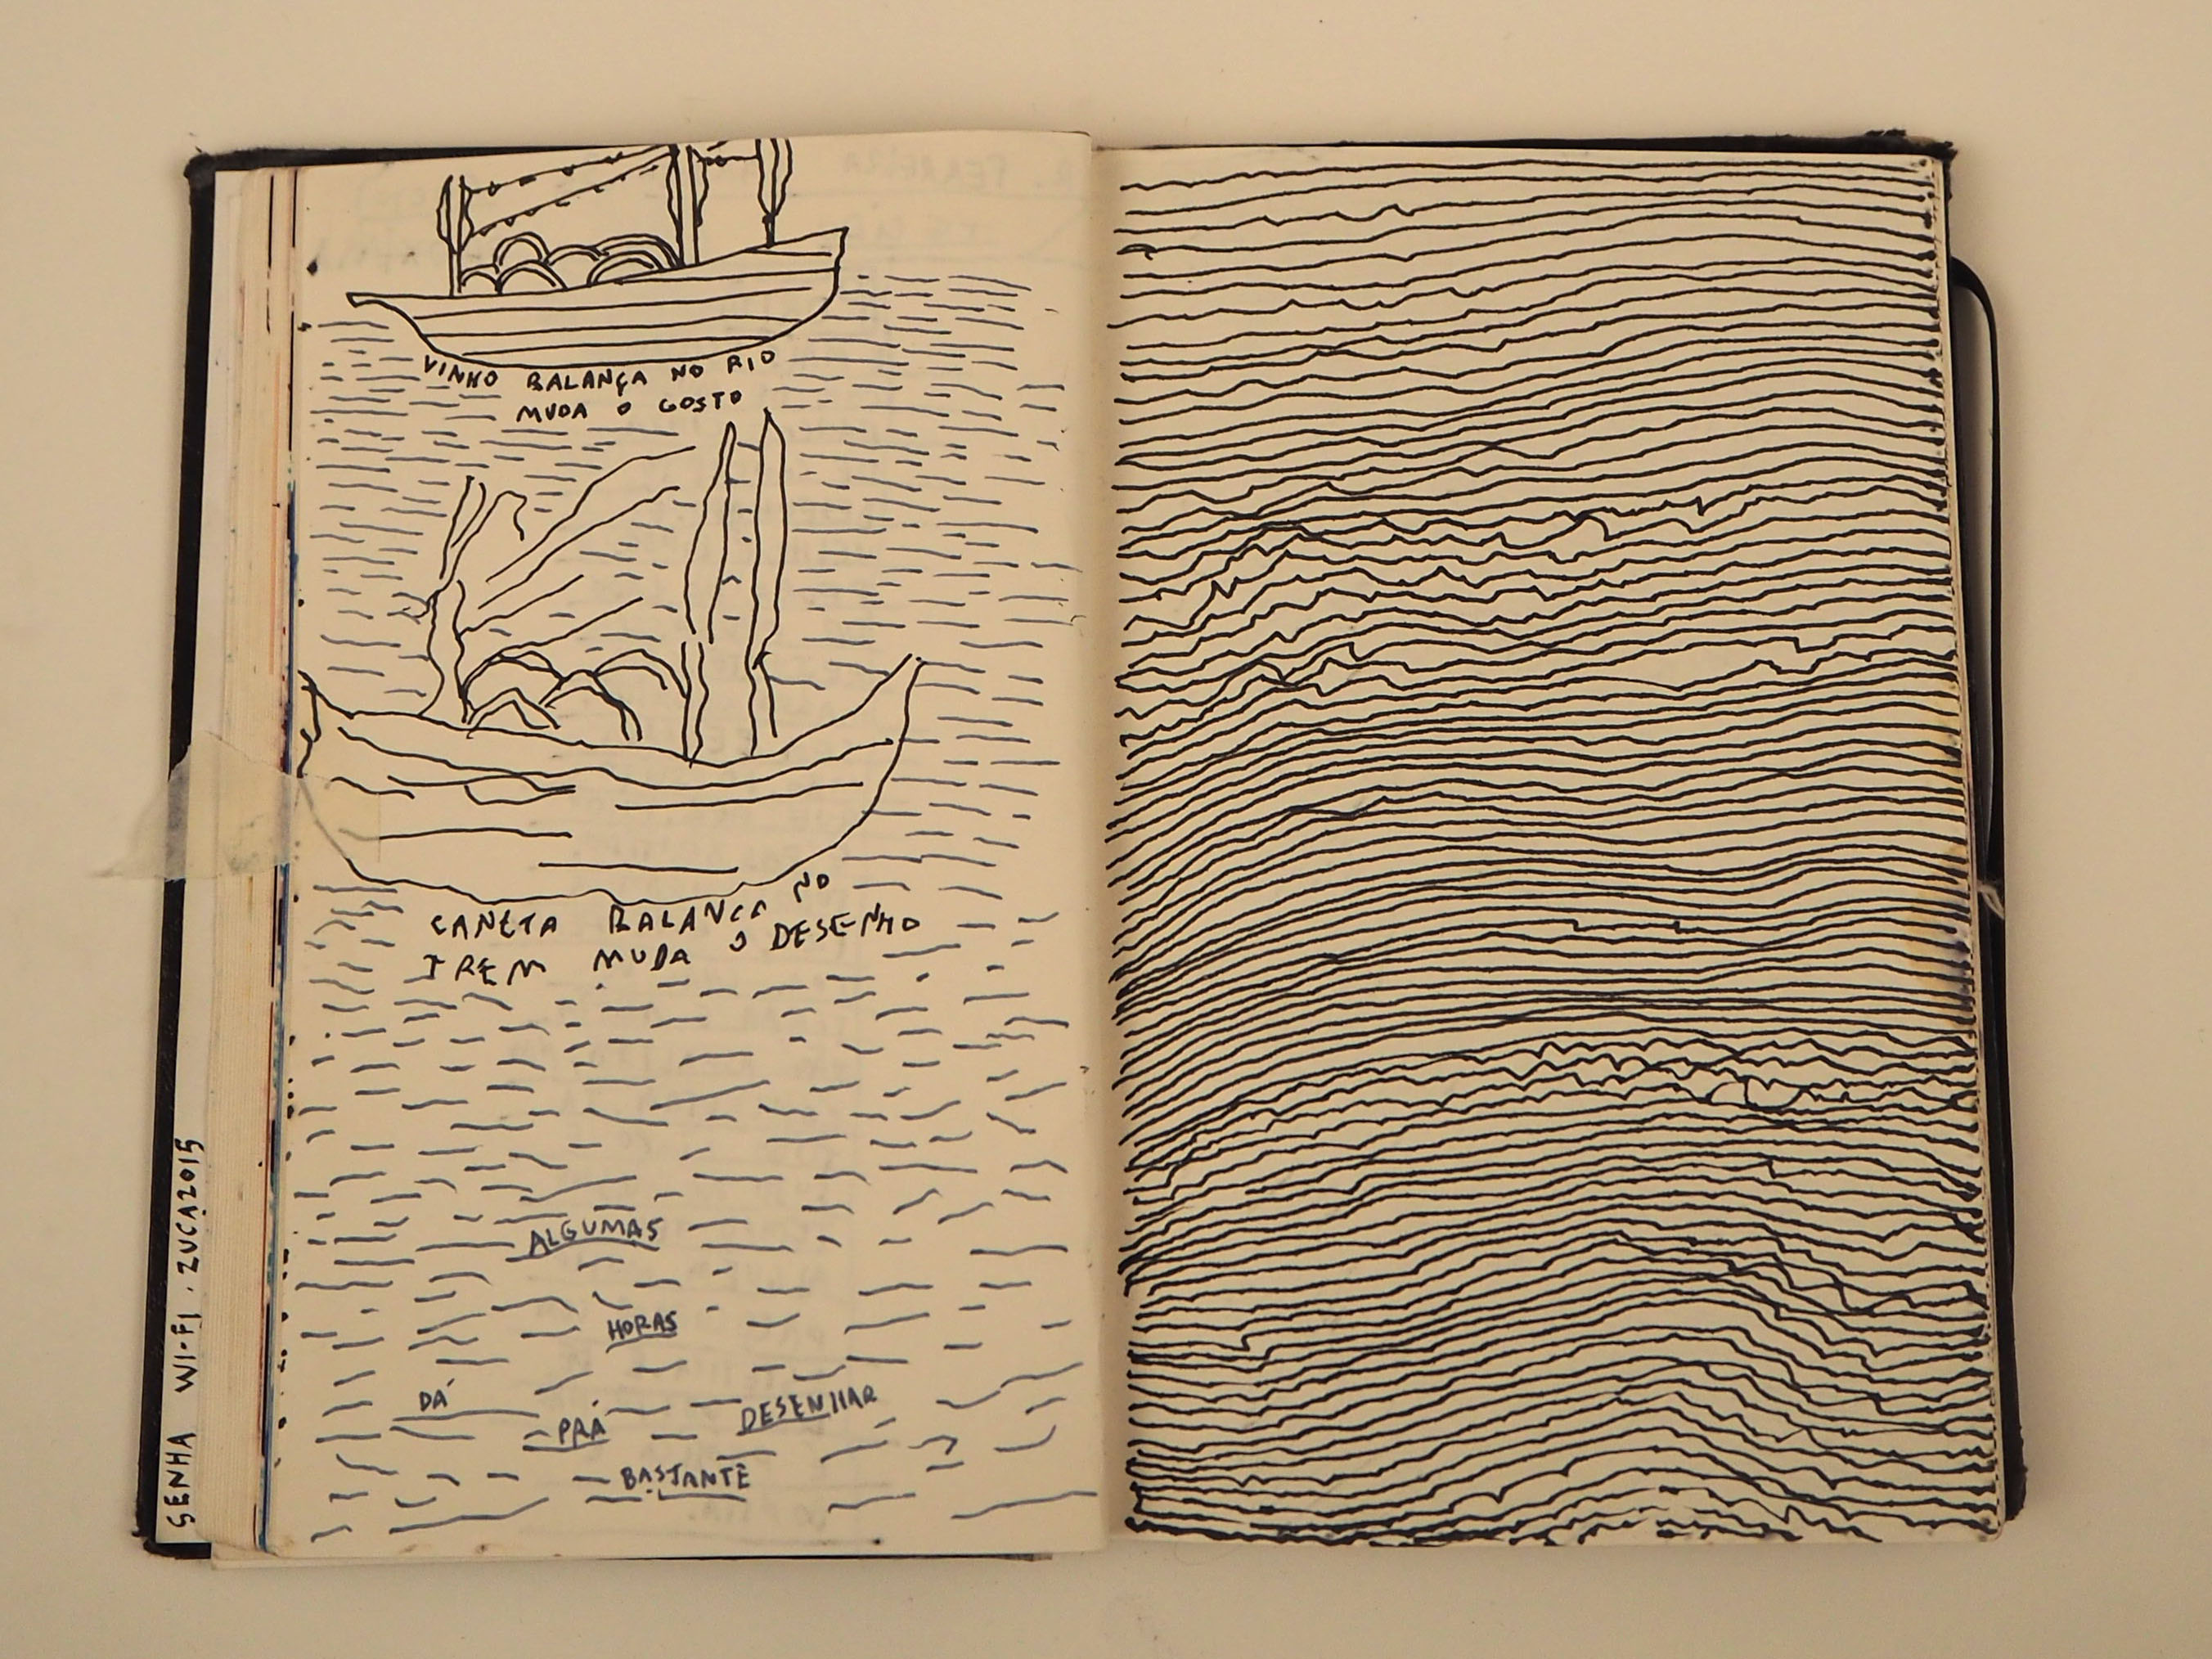 VINHO BALANÇA NO RIO
MUDA O GOSTO
CANETA BALANÇA NO
TREM MUDA O DESENHO
ALGUMAS
HORAS
DÁ
PRÁ
DESENHAR
BASTANTE
SENHA WI-FI. ZUCA2015